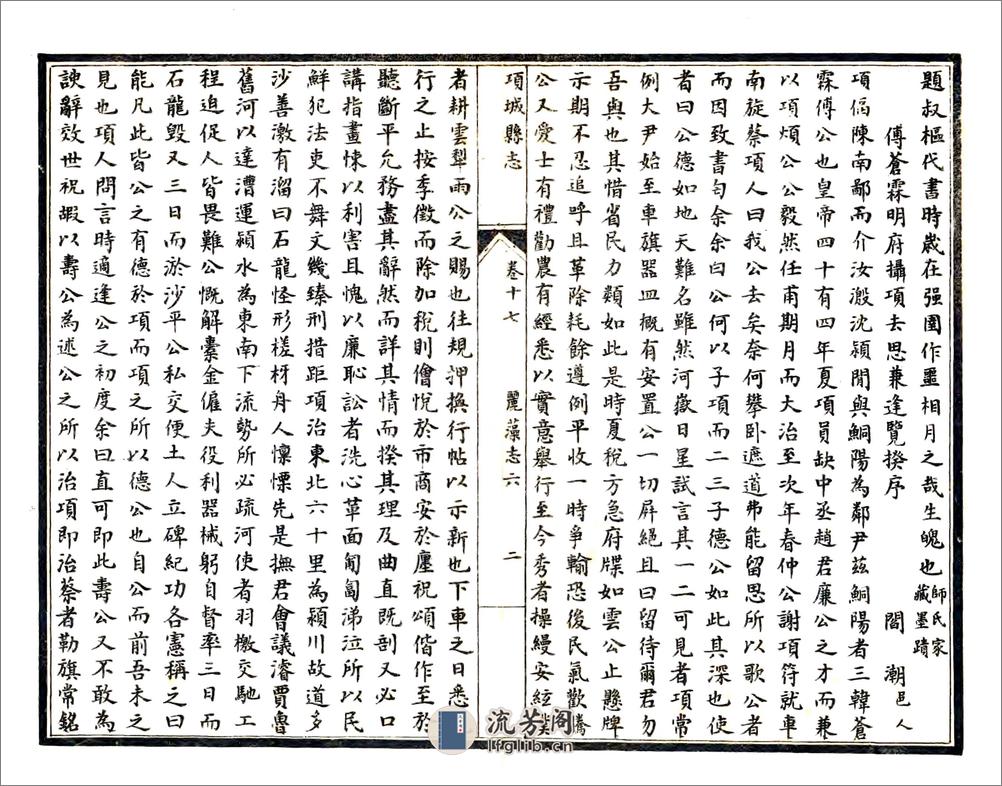 題叔樞代書時歲在强圉作噩相月之哉生魄也師氏家藏墨蹟
傅蒼霖明府攝項去思兼逢覽揆序 閻潮邑人
項偪陳南鄙而介汝潊沈潁間與鮦陽為鄰尹茲鮦陽者三韓蒼
霖傅公也皇帝四十有四年夏項員缺中丞趙君廉公之才而兼
以項煩公公毅然任甫期月而大治至次年春仲公謝項符就車
南旋蔡項人曰我公去矣奈何攀卧遮道弗能留思所以歌公者
而因致書匄余余曰公何以子項而二三子德公如此其深也使
者曰公德如地天難名雖然河嶽日星試言其一二可見者項常
例大尹始至車旗器皿概有安置公一切屏絕且曰留待爾君勿
吾與也其惜省民力類如此是時夏稅方急府牒如雲公止懸牌
示期不忍追呼且革除耗餘遵例平收一時爭輸恐後民氣歡騰
公又愛士有禮勸農有經悉以實意舉行至今秀者操縵安絃樸
項城縣志 卷十七 麗藻志六 二
者耕雲犁雨公之賜也往規押換行帖以示新也下車之日悉
行之止按季徵而除加稅則儈悅於市商安於廛祝頌偕作至於
聽斷平允務盡其辭然而詳其情而揆其理及曲直既剖又必口
講指畫悚以利害且愧以廉恥訟者洗心革面匍匐涕泣所以民
鮮犯法吏不舞文幾臻刑措距項治東北六十里為潁川故道多
沙善激有溜曰石龍怪形槎枒舟人懔慄先是撫君會議濬賈魯
舊河以達漕運潁水為東南下流勢所必疏河使者羽檄交馳工
程迫促人皆畏難公慨解橐金僱夫役利器械躬自督率三日而
石龍毀又三日而淤沙平公私交便土人立碑紀功各憲稱之曰
能凡此皆公之有德於項而項之所以德公也自公而前吾未之
見也項人問言時適逢公之初度余曰直可即此壽公又不敢為
諛辭效世祝嘏以壽公為述公之所以治項即治蔡者勒旗常銘
流芳阁
lfglib.cn